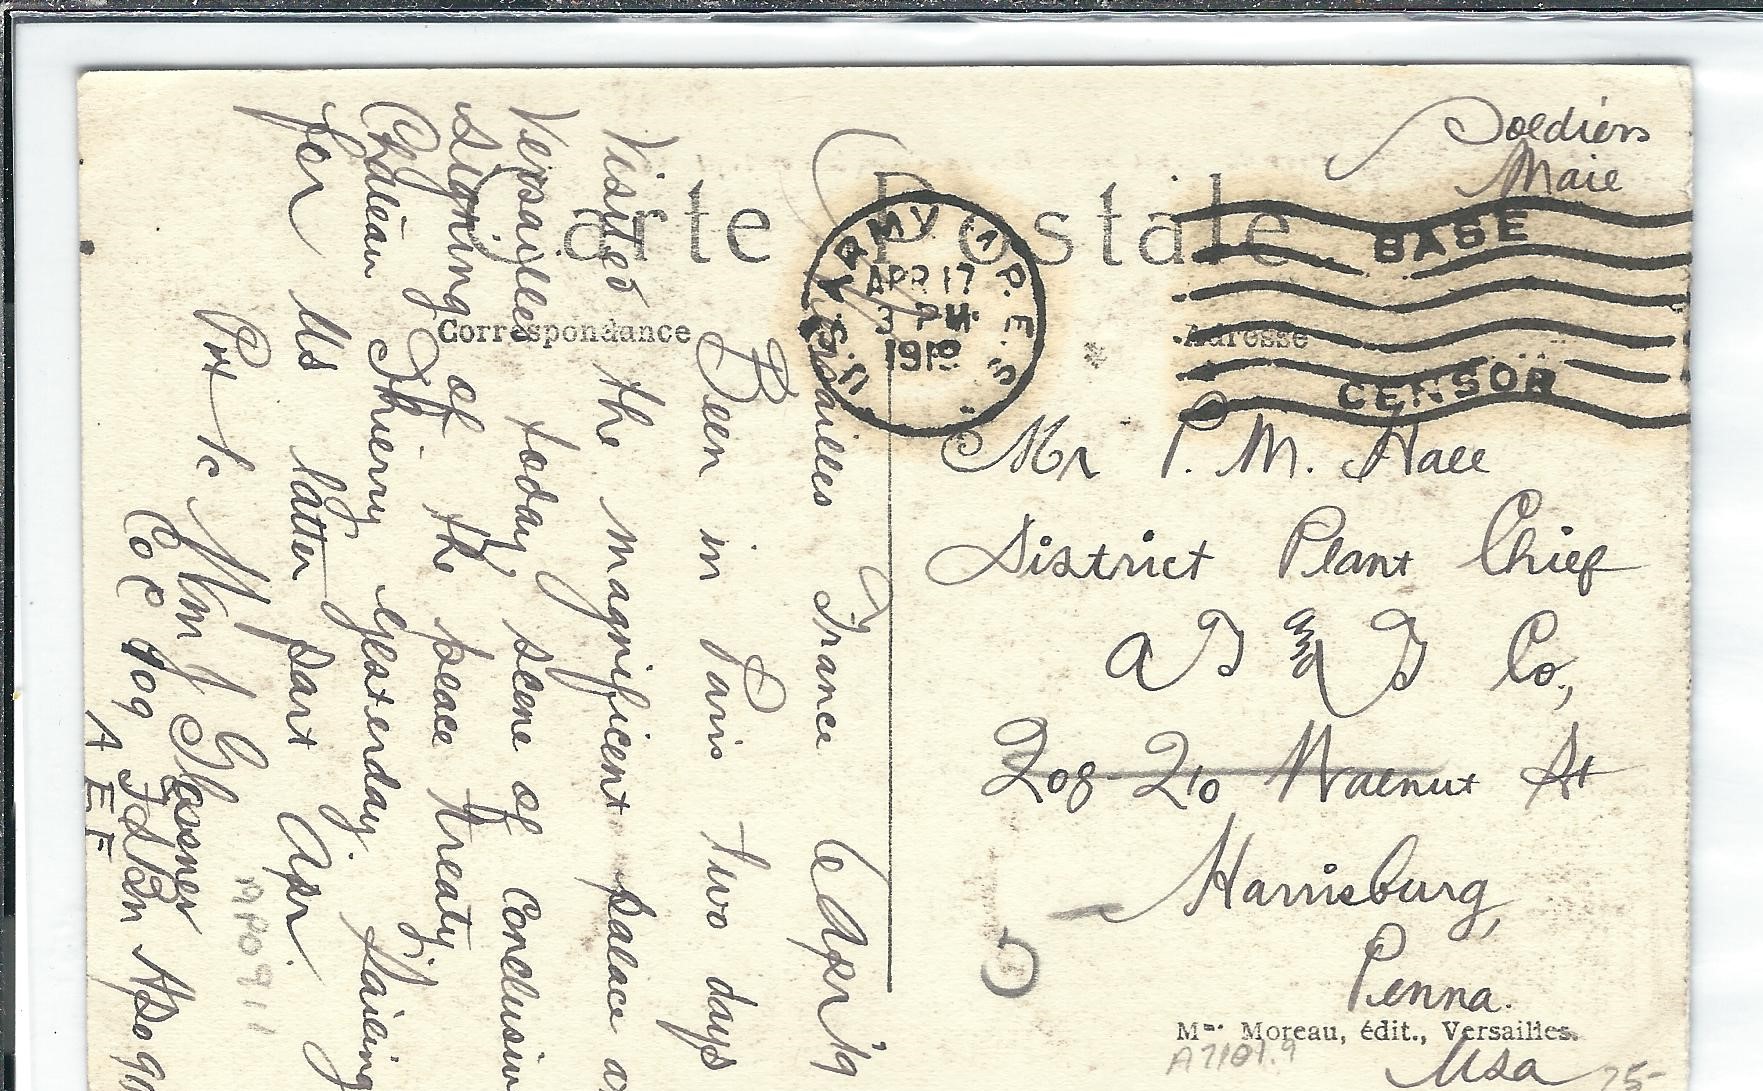 Soldiers
Mail
Carte Postale
Correspondance
Adresse
U.S. ARMY M.P.E.S.
APR 17
3 PM
1919
BASE
CENSOR
Mr P. M. Hall
District Plant Chief
A T and T Co.,
208-210 Walnut St
Harrisburg,
Penna.
USA
Mme Moreau, édit., Versailles.
A7181.9
75-
Versailles France 6 Apr '19
Been in Paris two days
Visited the magnificent palace
Versailles today, scene of conclusion
signing of the peace treaty.
Chateau Thierry yesterday. Sailing
for US latter part Apr.
Pvt 1c Wm J
Co C 409 Tel Bn APO
A E F
MPO911